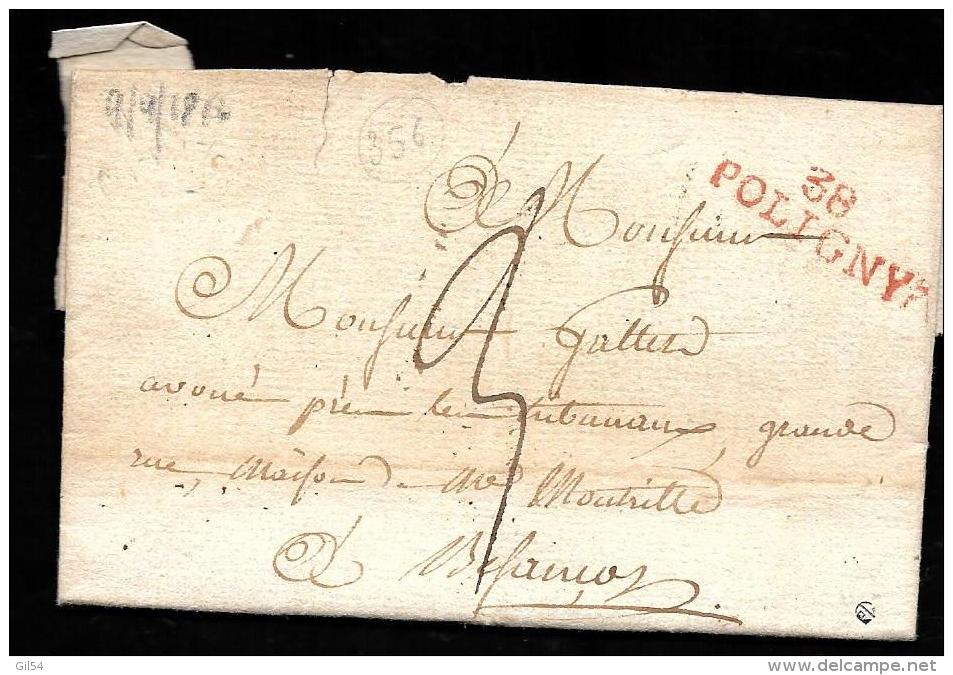 356
38
POLIGNY
À Monsieur
3
Monsieur
avoué près les tribunaux, grande
rue, Maison de Mr
À Besançon
Gil54
www.delcampe.net